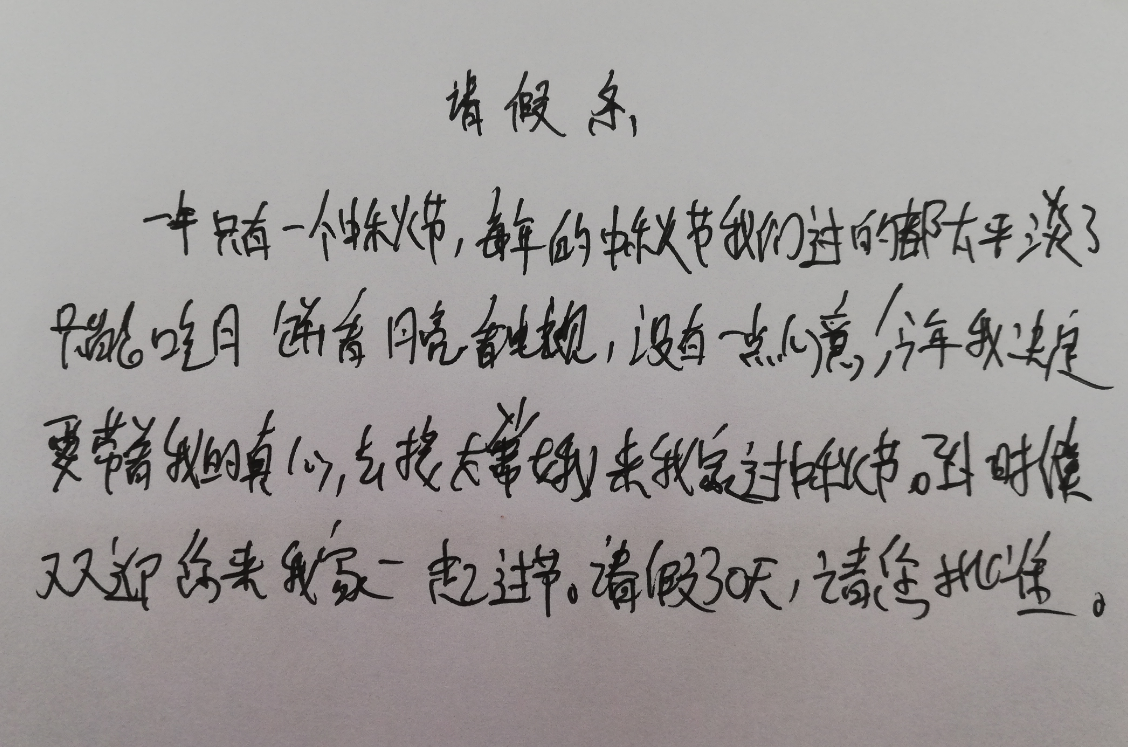 请假条
一年只有一个中秋节,每年的中秋节我们过的都太平淡了
只能吃月饼看月亮看电视,没有一点心意,今年我决定
要带着我的真心,去找大 来我家过中秋节。到时候
又又迎你来我家一起过节。请假30天,请您批准。